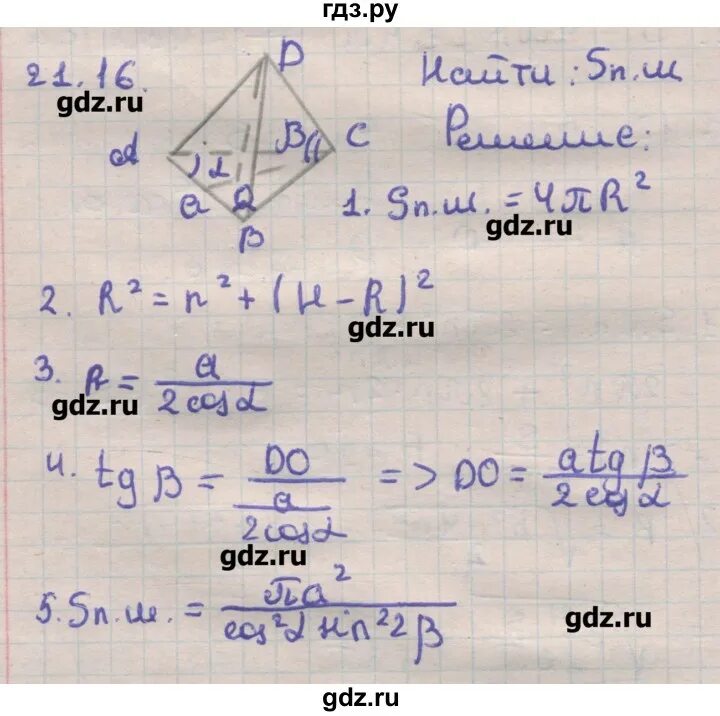 гдз.ру
21.16.
gdz.ru
D
A
α
a
B
β
C
Найти: Sп.ш
Решение:
1. Sп.ш. = 4πR²
gdz.ru
2. R² = r² + (H - R)²
gdz.ru
3. R = a / 2cosα
gdz.ru
4. tgβ = DO / (a / 2cosα) => DO = atgβ / 2cosα
gdz.ru
5. Sп.ш. = πa² / cos²α sin²2β
gdz.ru
gdz.ru